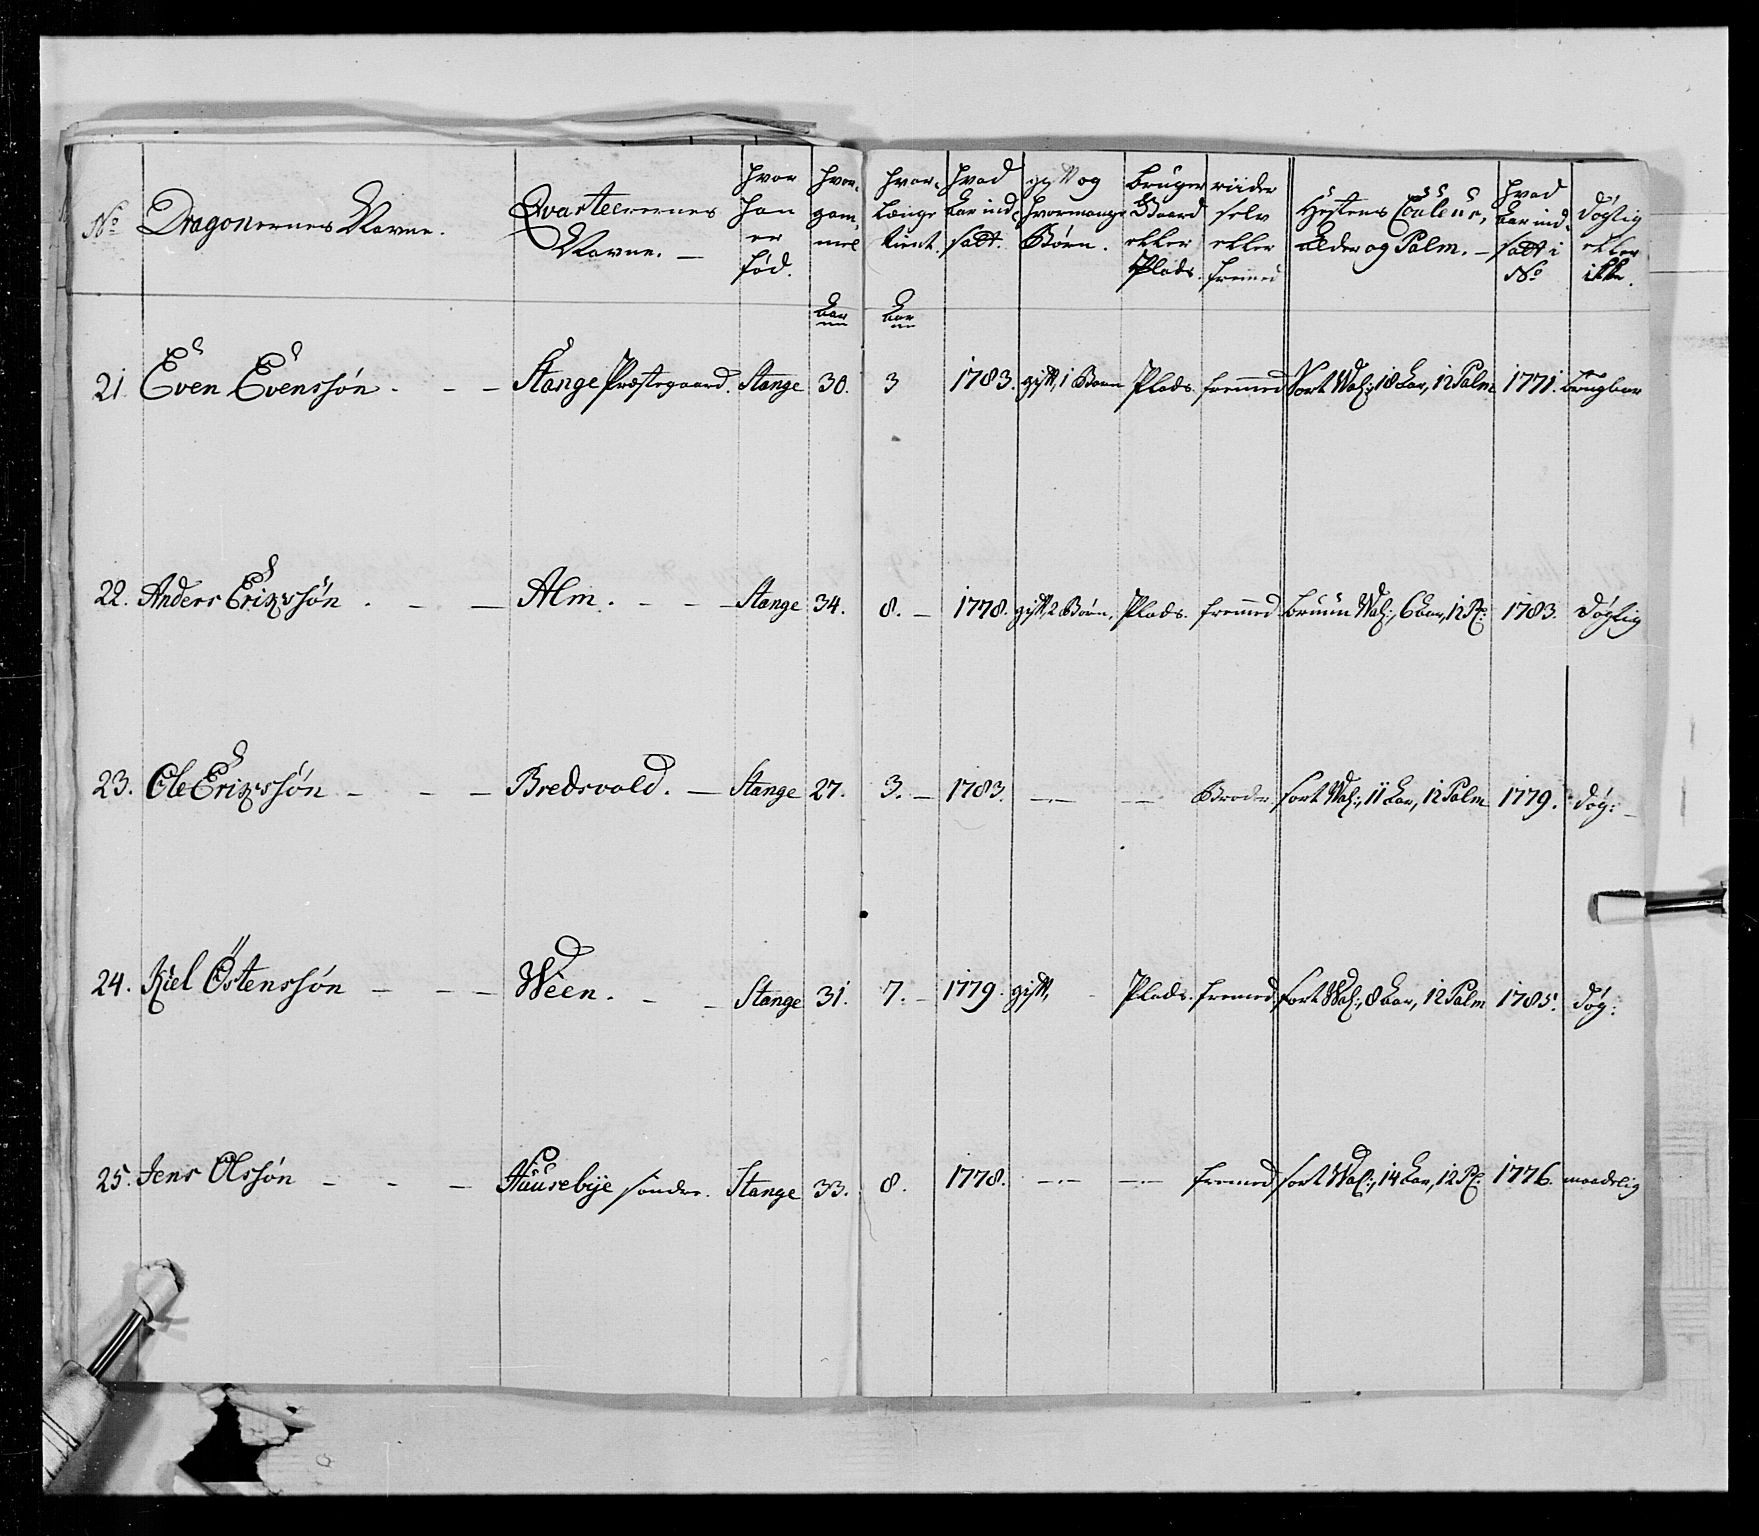 No | Dragonernes Navne. | Qvarteerernes Navne. — | hvor han er fød. | hvor- gam- mel | hvor- længe tient. | hvad Aar ind- satt. | gift og hvormange Børn. | bruger Gaard eller Plads | riider selv eller fremed | Hestens Couleur, Alder og Palm. — | hvad Aar ind- satt i No | døgtig eller ikke.
Aar | Aar
21. | Even Evenssøn. - - - | Stange Præstegaard. | Stange | 30. | 3 | 1783. | gift, 1 Barn | Plads. | fremmed | Sort Val:, 18 Aar, 12 Palm | 1771. | brugbar
22. | Anders Erichssøn. - - - | Alm. - - - | Stange | 34. | 8. - | 1778. | gift, 2 Børn, | Plads. | fremmed | bruun Val:, 6 Aar, 12 P: | 1783. | døgtig
23. | Ole Erichssøn - - - | Bredvold. - | Stange | 27. | 3. - | 1783. | -.- | -.- | Broder | sort Val:, 11 Aar, 12 Palm | 1779. | døg: -
24. | Kiel Östenssøn - - - | Wéen. - - | Stange | 31. | 7. - | 1779. | gift, - | Plads. | fremed | sort Val:, 8 Aar, 12 Palm | 1785. | døg:
25. | Jens Olssøn - - - | Huusebÿe søndre. | Stange | 33. | 8. | 1778. | -.- | -.- | fremed | sort Val:, 14 Aar, 12 P: | 1776. | maadelig